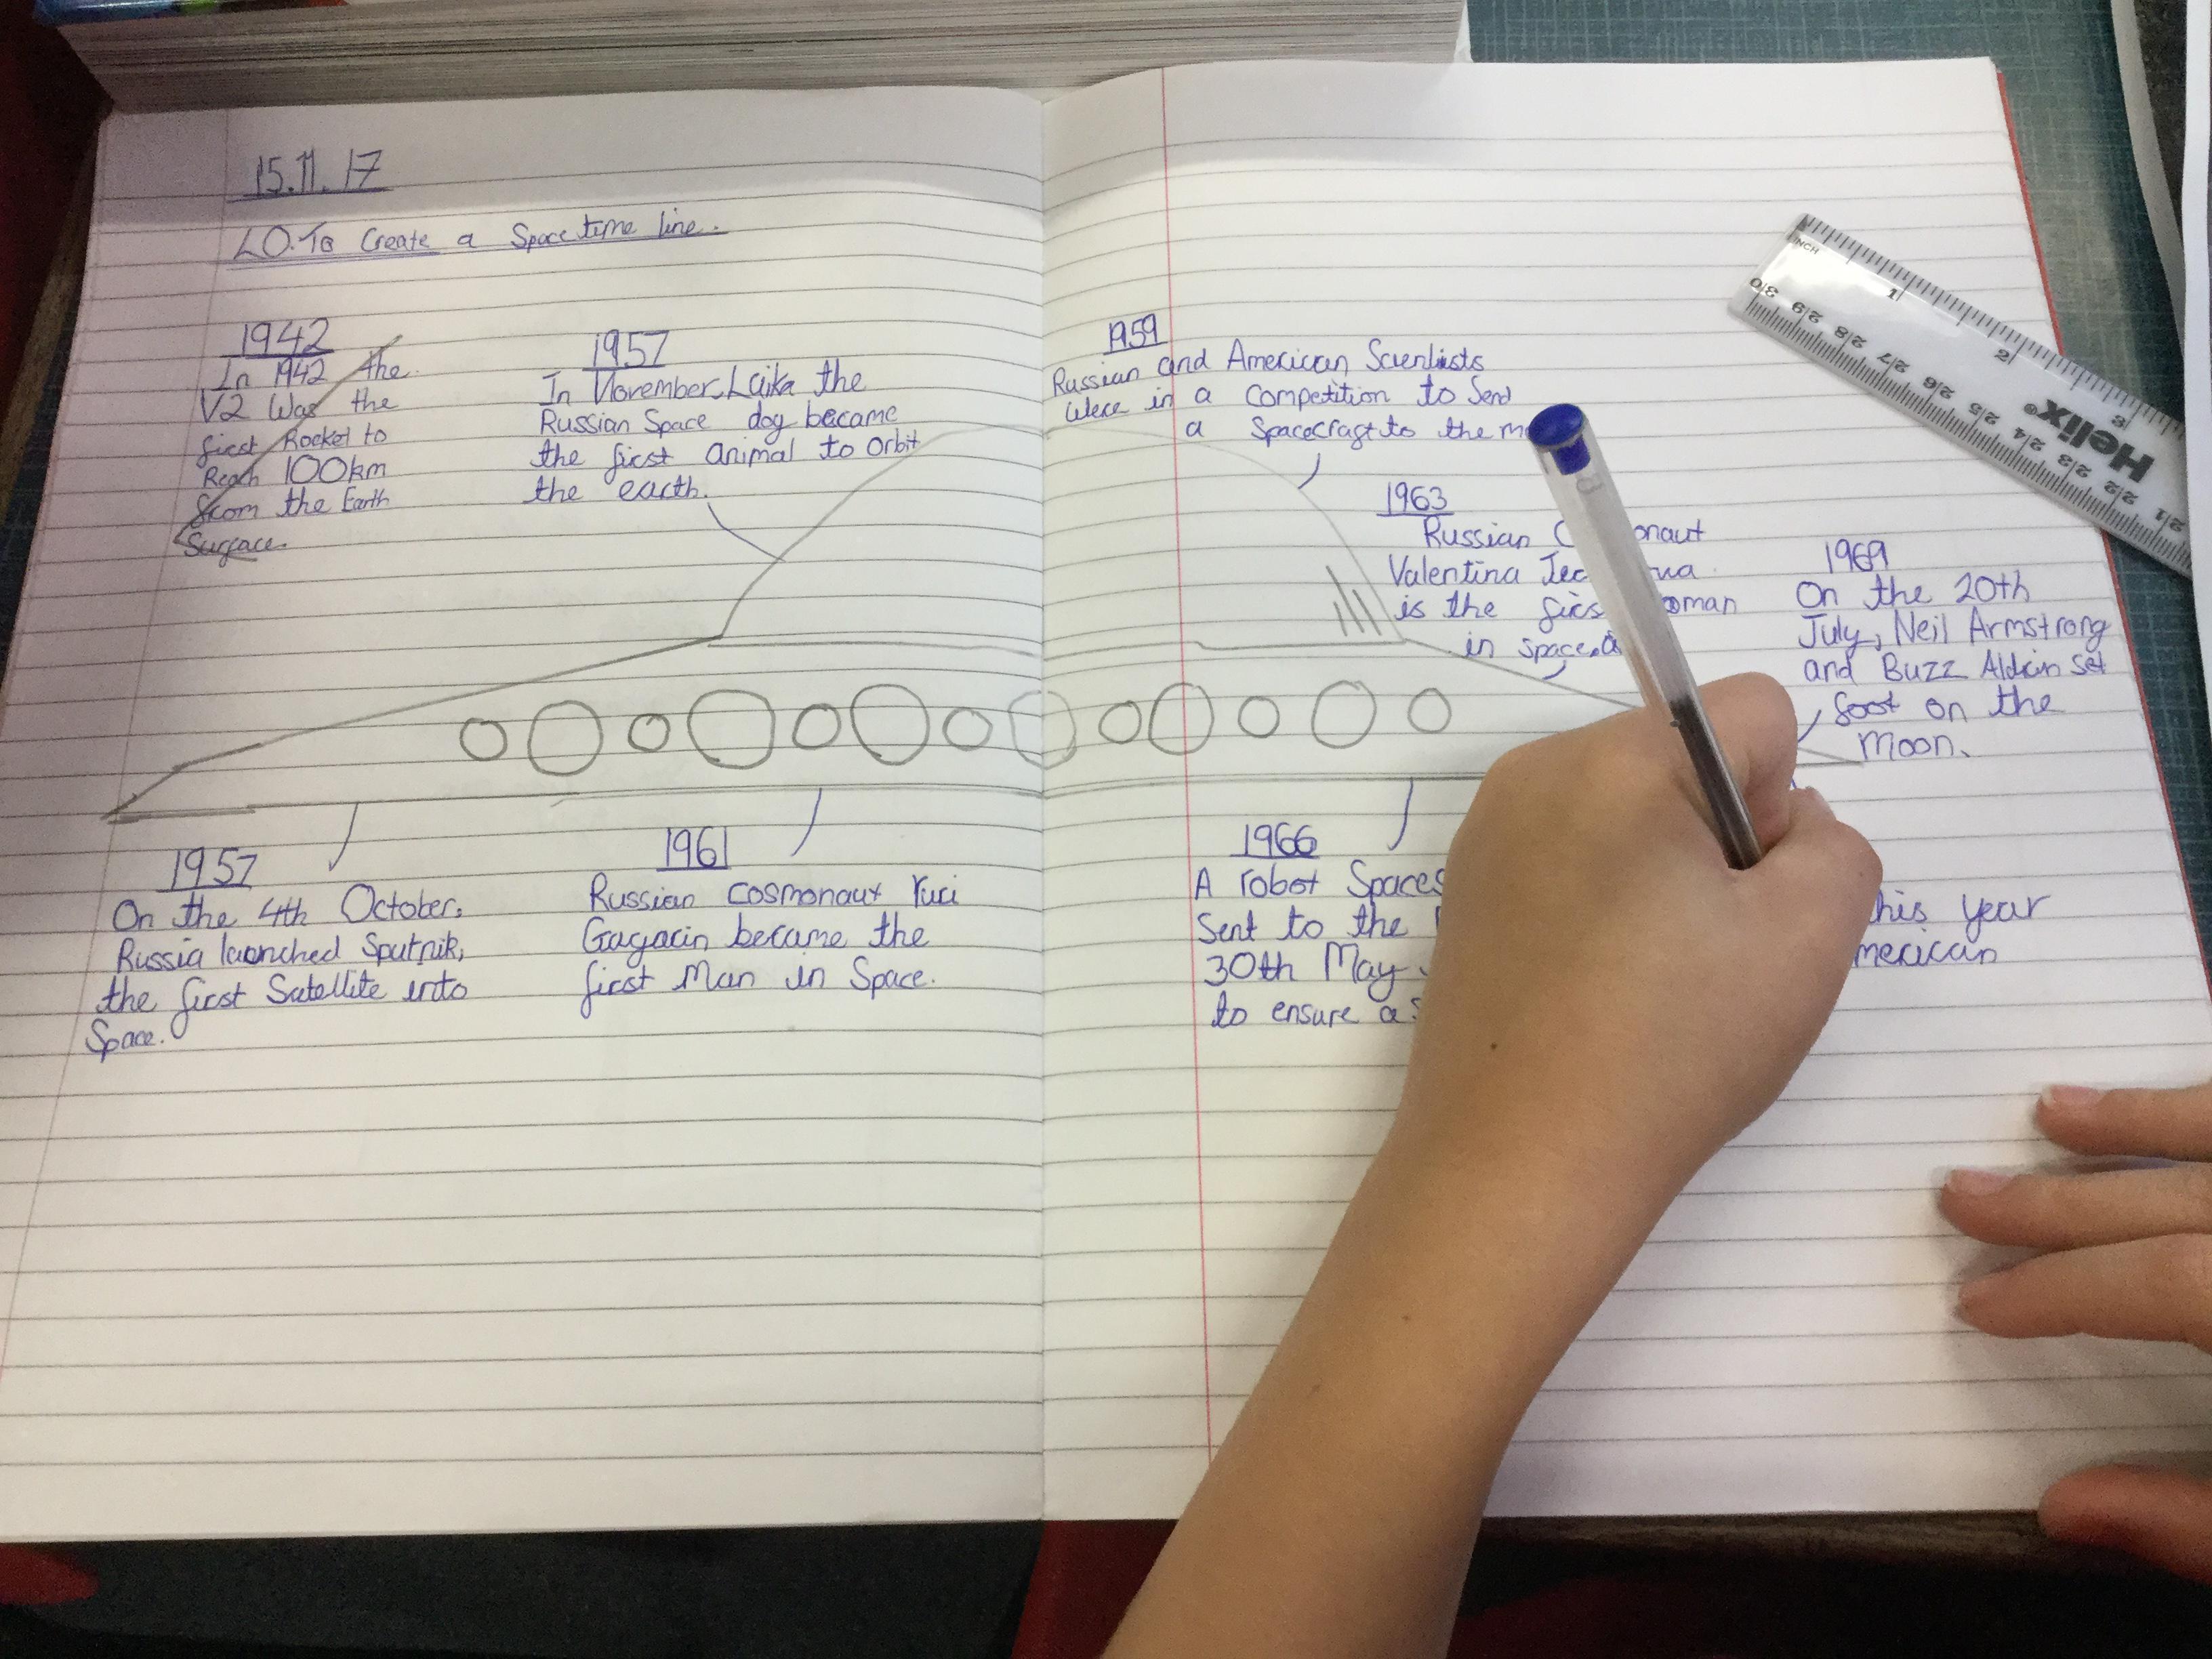 15.11.17
LO.To Create a Space time line.
1942
In 1942 the
V2 Was the
first Rocket to
Reach 100km
from the Earth
Surface.
1957
In November, Laika the
Russian Space dog became
the first animal to orbit
the earth.
1959
Russian and American Scientists
Were in a Competition to Send
a Spacecraft to the
1963
Russian
Valentina
is the
in space.
1969
On the 20th
July, Neil Armstrong
and Buzz Aldrin set
foot on the
Moon.
1957
On the 4th October,
Russia launched Sputnik,
the first Satellite into
Space.
1961
Russian cosmonaut Yuri
Gagarin became the
first Man in Space.
1966
A robot
Sent to the
30th May
to ensure a
year
INCH
1
2
3
30
29
28
27
26
25
24
23
22
21
Helix®